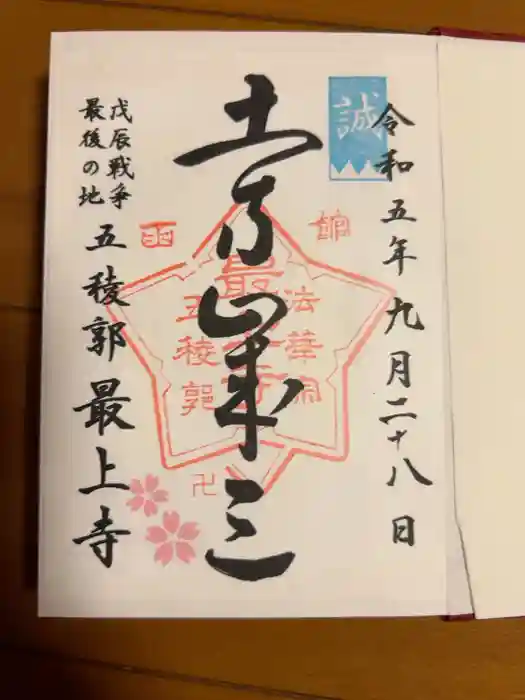 誠
令和五年九月二十八日
土方歳三
法華宗
最上寺
五稜郭
函
館
卍
戊辰戦争
最後の地
五稜郭 最上寺